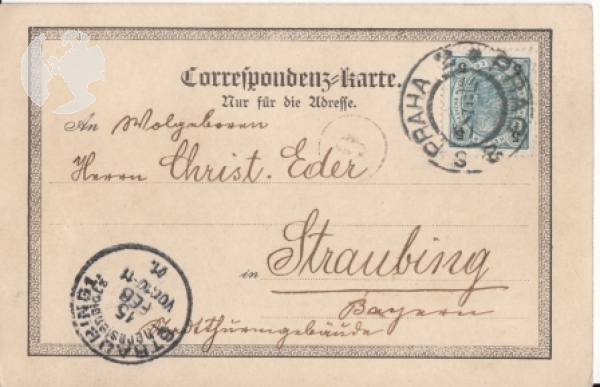 Correspondenz-Karte.
Nur für die Adresse.
An Wolgeboren
Herrn Christ. Eder
in Straubing
Bayern
Stadtthurmgebäude
PRAHA PRAG
STRAUBING 1
15
FEB
VOR. 10-11
01.